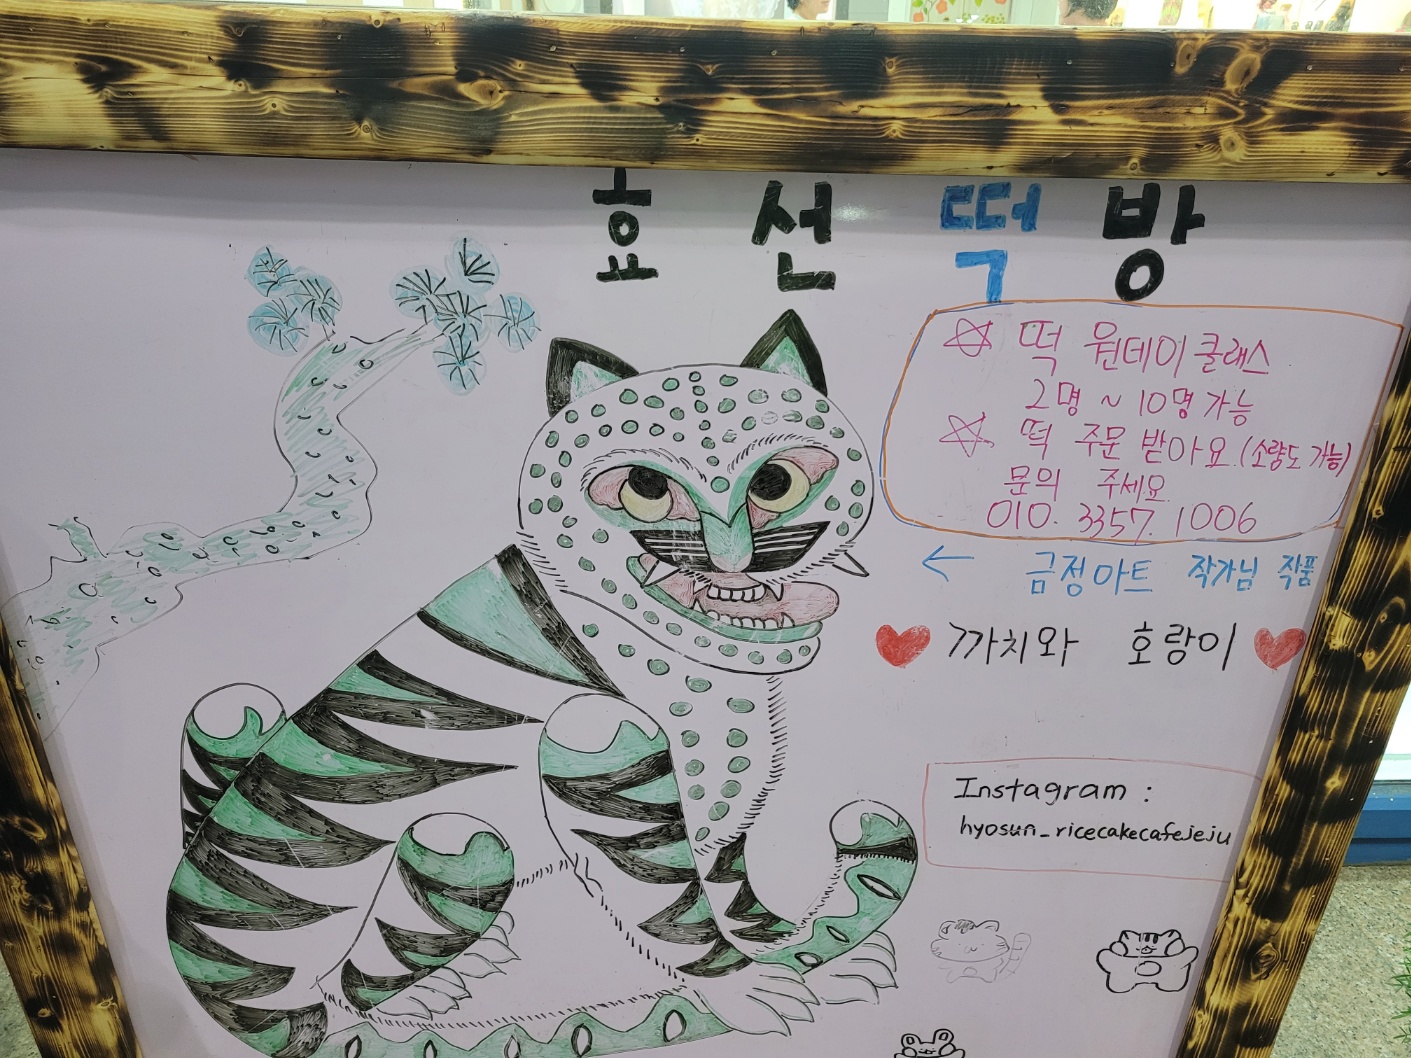 효선떡방
☆ 떡 원데이 클래스
2명 ~ 10명 가능
☆ 떡 주문 받아요.(소량도 가능)
문의 주세요.
010. 3357. 1006
← 금정아트 작가님 작품
♥ 까치와 호랑이 ♥
Instagram :
hyosun_ricecakecafejeju